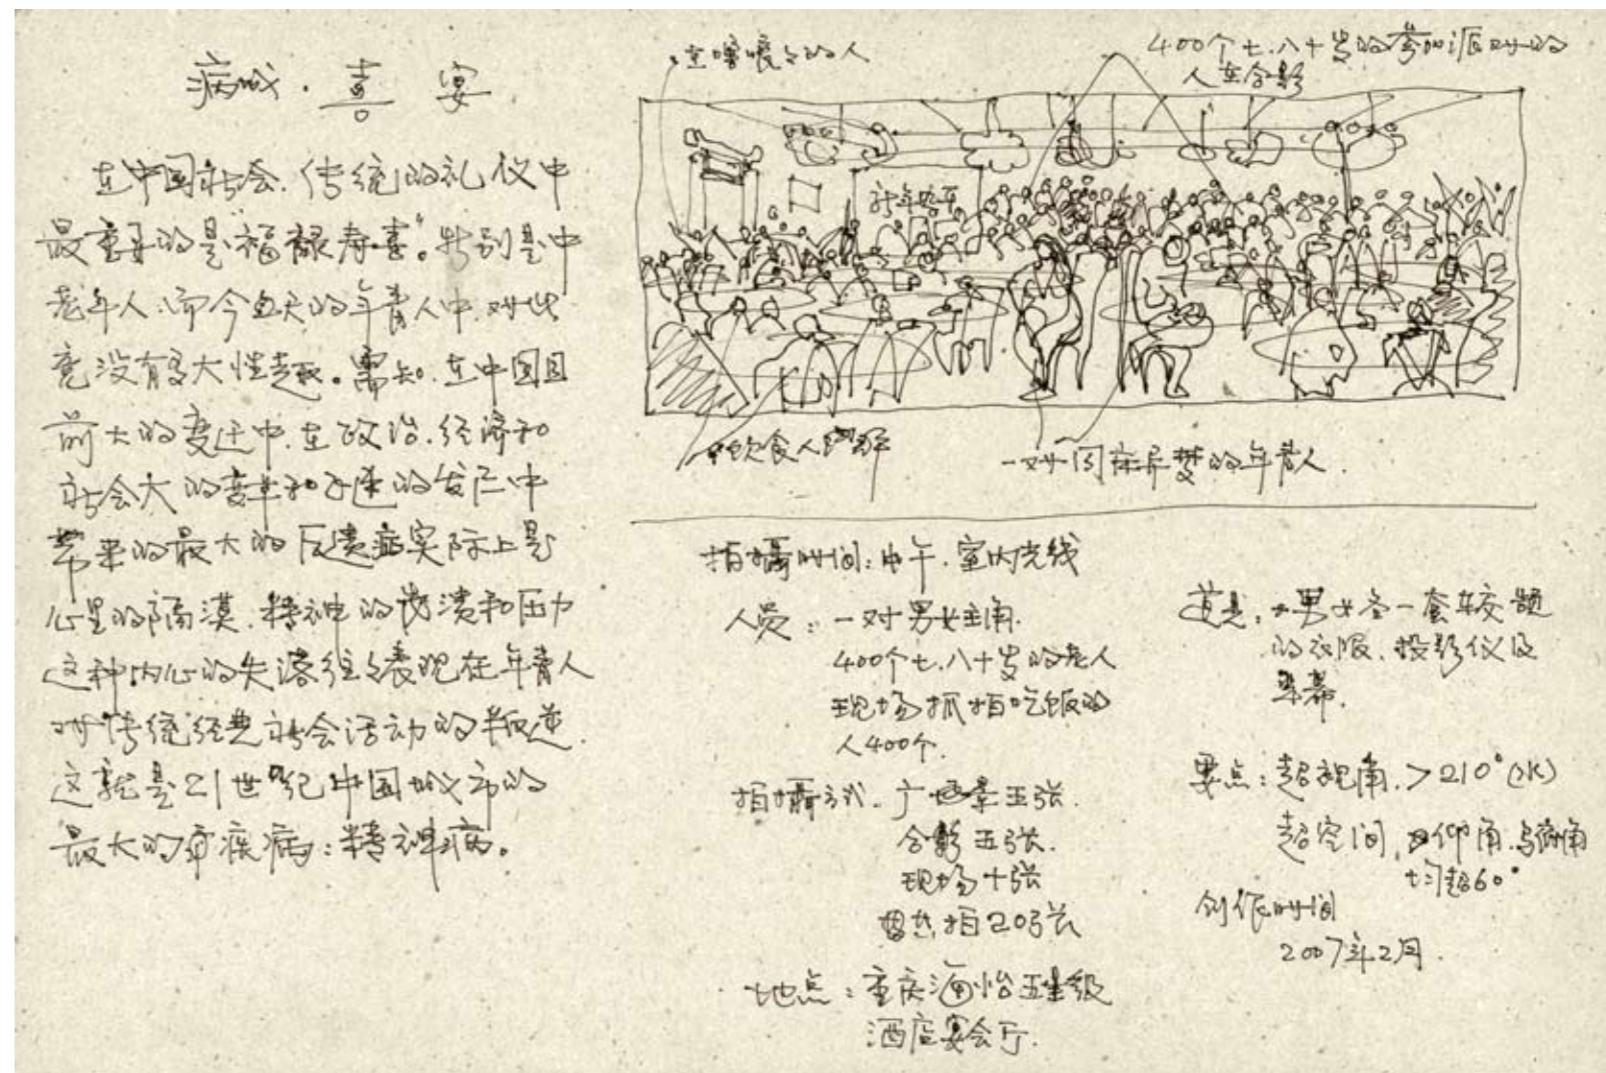 病城·喜宴
在中国社会、传统的礼仪中
最重要的是“福禄寿喜”。特别是中
老年人、而今天的年青人中,对此
竟没有多大性趣。需知、在中国目
前大的变迁中、在政治、经济和
社会大的变革和的发展中
带来的最大的后遗症实际上是
心里的隔漠、精神的崩溃和压力
这种内心的失落往往表现在年青人
对传统经典社会活动的叛逆、
这就是21世纪中国城市的
最大的疾病:精神病。
在喧喧的人
400个七、八十岁的参加派对的
人在合影
新年
饮食人群
一对同床异梦的年青人
拍摄时间:中午、室内光线
人员:一对男女主角、
400个七、八十岁的老人
现场抓拍吃饭的
人400个、
拍摄方式、广场景五张、
合影五张、
现场十张
拍20张
地点:重庆海怡五星级
酒店宴会厅、
道具:男女各一套较靓
的衣服、投影仪及
屏幕、
要点:超视角、>210°(水)
超空间、仰角、与俯角
均超60°
创作时间
2007年2月、